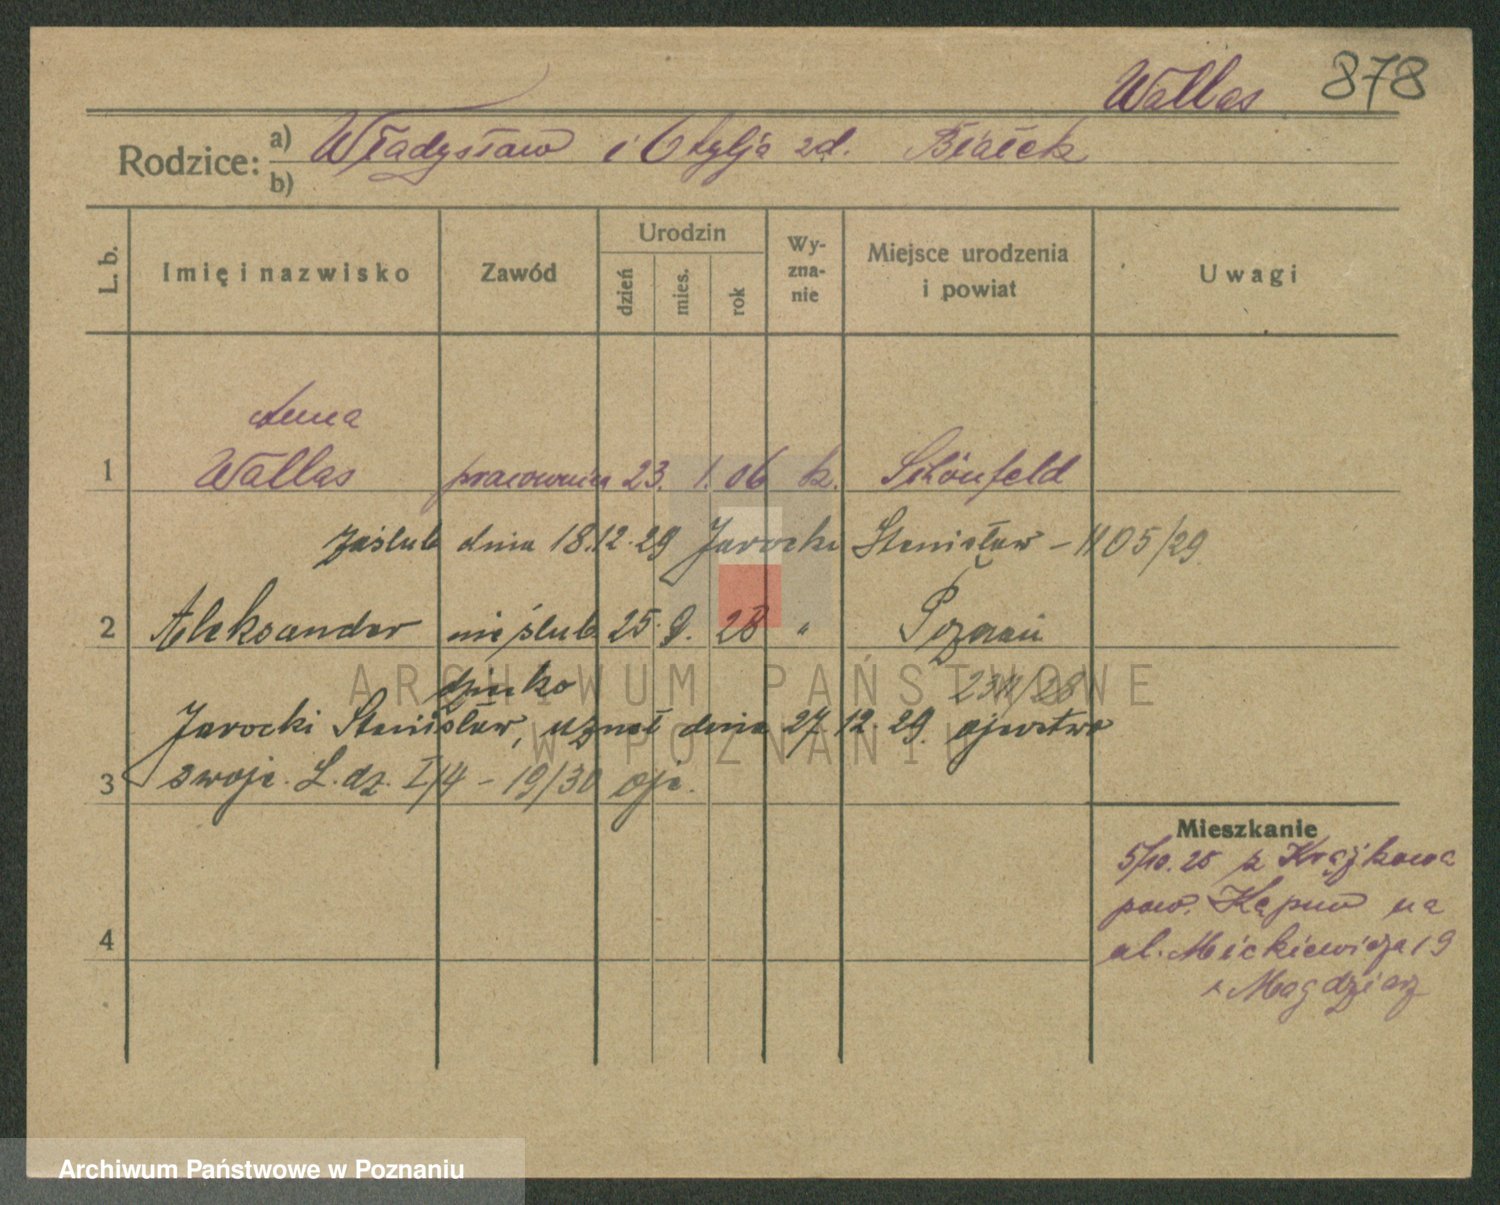 Wallas 878
Rodzice: a) Władysław i Otylja zd. Białek
b)
L. b. Imię i nazwisko Zawód Urodzin dzień mies. rok Wy-zna-nie Miejsce urodzenia i powiat Uwagi
Anna
1 Wallas pracownica 23. 1. 06 k. Schönfeld
zaślub dnia 18.12.29 Jarocki Stanisław – 1105/29
2 Aleksander nieślub. 25. 9. 28 " Poznań
dziecko
Jarocki Stanisław, uznał dnia 27.12.29. ojcostwo
3 swoje. L. dz. I/4 – 19/30 ojc.
Mieszkanie
5/10.25 z Krążkowa
pow. Kępno na
4
ul. Mickiewicza 19
Magdziarz
ARCHIWUM PAŃSTWOWE
W POZNANIU
Archiwum Państwowe w Poznaniu